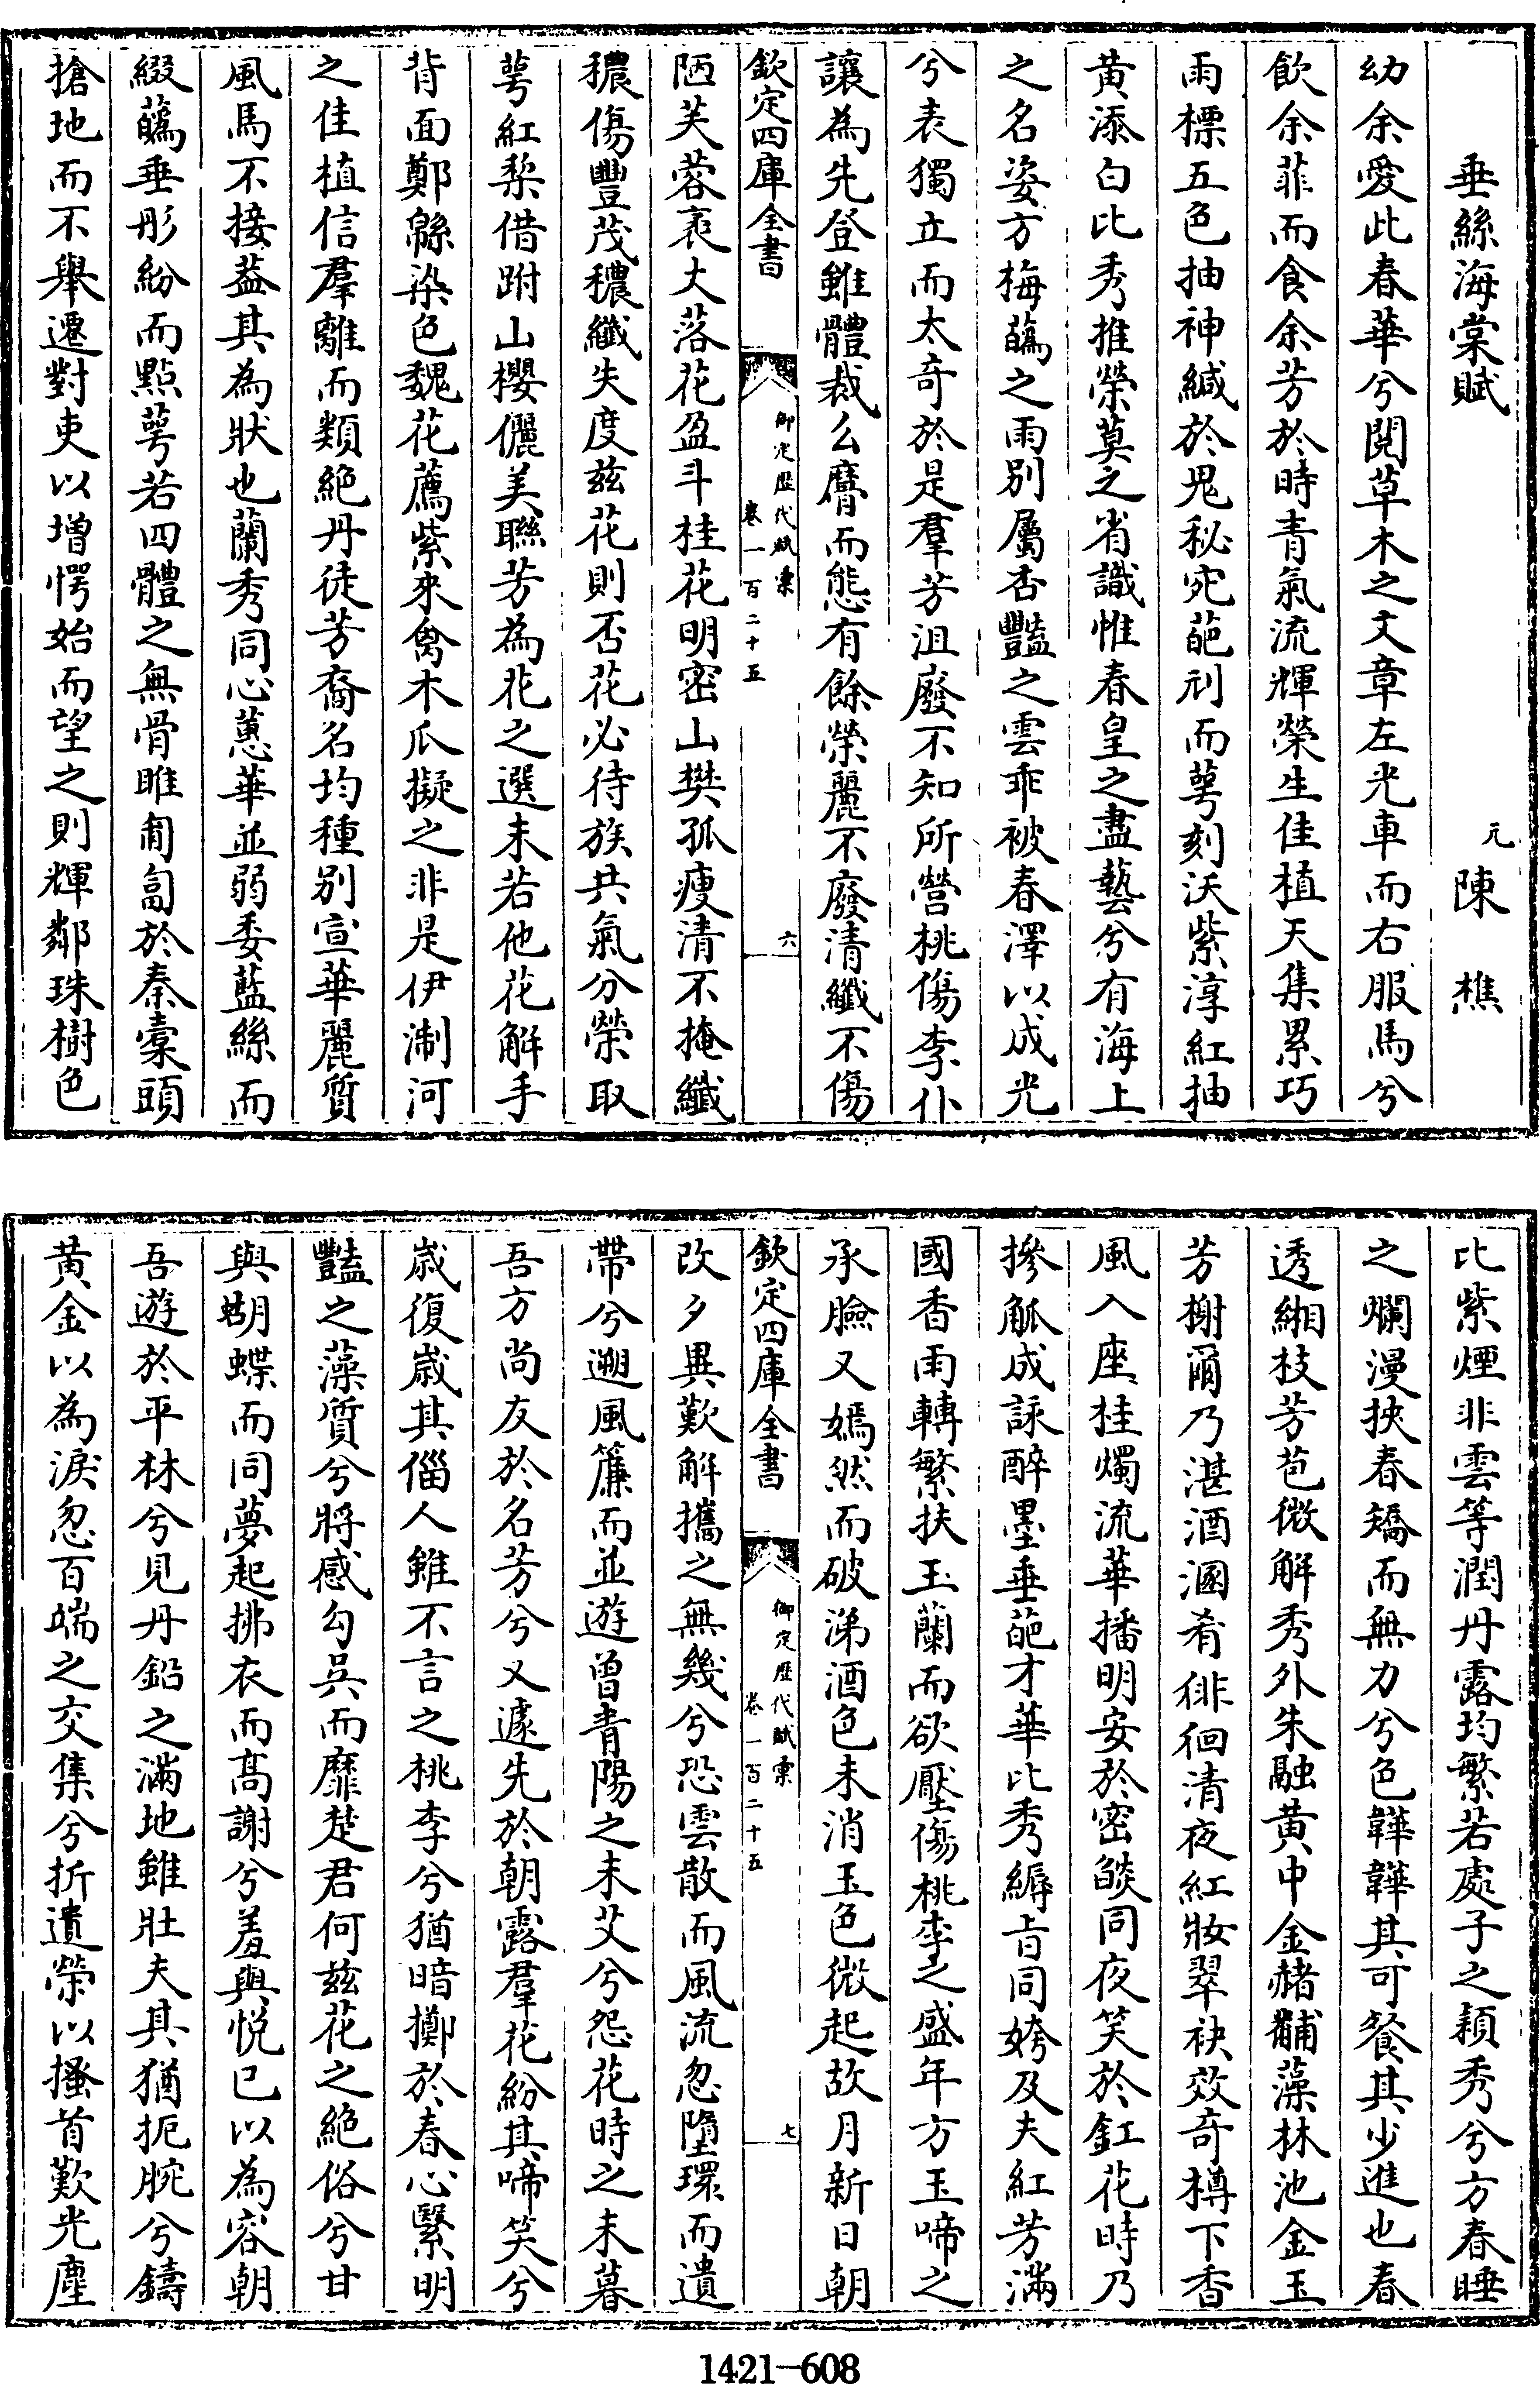 垂絲海棠賦
元陳樵
幼余愛此春華兮閱草木之文章左光車而右服馬兮
飲余菲而食余芳於時青氣流輝榮生佳植天集累巧
雨標五色抽神緘於鬼秘宛葩刓而萼刻沃紫淳紅抽
黃添白比秀推榮莫之省識惟春皇之盡藝兮有海上
之名姿方梅蘤之雨別屬杏豔之雲乖被春澤以成光
兮表獨立而太奇於是羣芳沮廢不知所營桃傷李仆
讓為先登雖體裁么麿而態有餘榮麗不廢清纖不傷
欽定四庫全書
御定歷代賦彙
卷一百二十五
六
陋芙蓉袤丈落花盈斗桂花明密山礬孤瘦清不掩纖
穠傷豐茂穠纖失度兹花則否花必待族共氣分榮取
萼紅棃借跗山櫻儷美聯芳為花之選未若他花解手
背面鄭緜染色魏花薦紫來禽木瓜擬之非是伊淛河
之佳植信羣離而類絕丹徒芳裔名均種別宣華麗質
風馬不接葢其為狀也蘭秀同心蕙華並弱委藍絲而
綴蘤垂彤紛而點萼若四體之無骨睢匍匐於秦橐頭
搶地而不舉遷對吏以增愕始而望之則輝鄰珠樹色
比紫煙非雲等潤丹露均繁若處子之穎秀兮方春睡
之爛漫挾春矯而無力兮色韡韡其可餐其少進也春
透緗枝芳苞微解秀外朱融黃中金赭黼藻林池金玉
芳榭爾乃湛酒溷肴徘徊清夜紅妝翠袂效奇樽下香
風入座桂燭流華播明安於密燄同夜笑於釭花時乃
摻觚成詠醉墨垂葩才華比秀縟旨同姱及夫紅芳滿
國香雨轉繁扶玉蘭而欲壓傷桃李之盛年方玉啼之
承臉又嫣然而破涕酒色未消玉色微起故月新日朝
欽定四庫全書
御定歷代賦彙
卷一百二十五
七
改夕異歎解攜之無幾兮恐雲散而風流忽墮環而遺
帶兮遡風簾而並遊曾青陽之未艾兮怨花時之未暮
吾方尚友於名芳兮又遽先於朝露羣花紛其啼笑兮
歲復歲其傴人雖不言之桃李兮猶暗擲於春心緊明
豔之藻質兮將感勾吳而靡楚君何兹花之絕俗兮甘
與蝴蝶而同夢起拂衣而高謝兮羞與悅已以為容朝
吾遊於平林兮見丹鉛之滿地雖壯夫其猶扼腕兮鑄
黃金以為淚忽百端之交集兮折遺榮以搔首歎光塵
1421—608